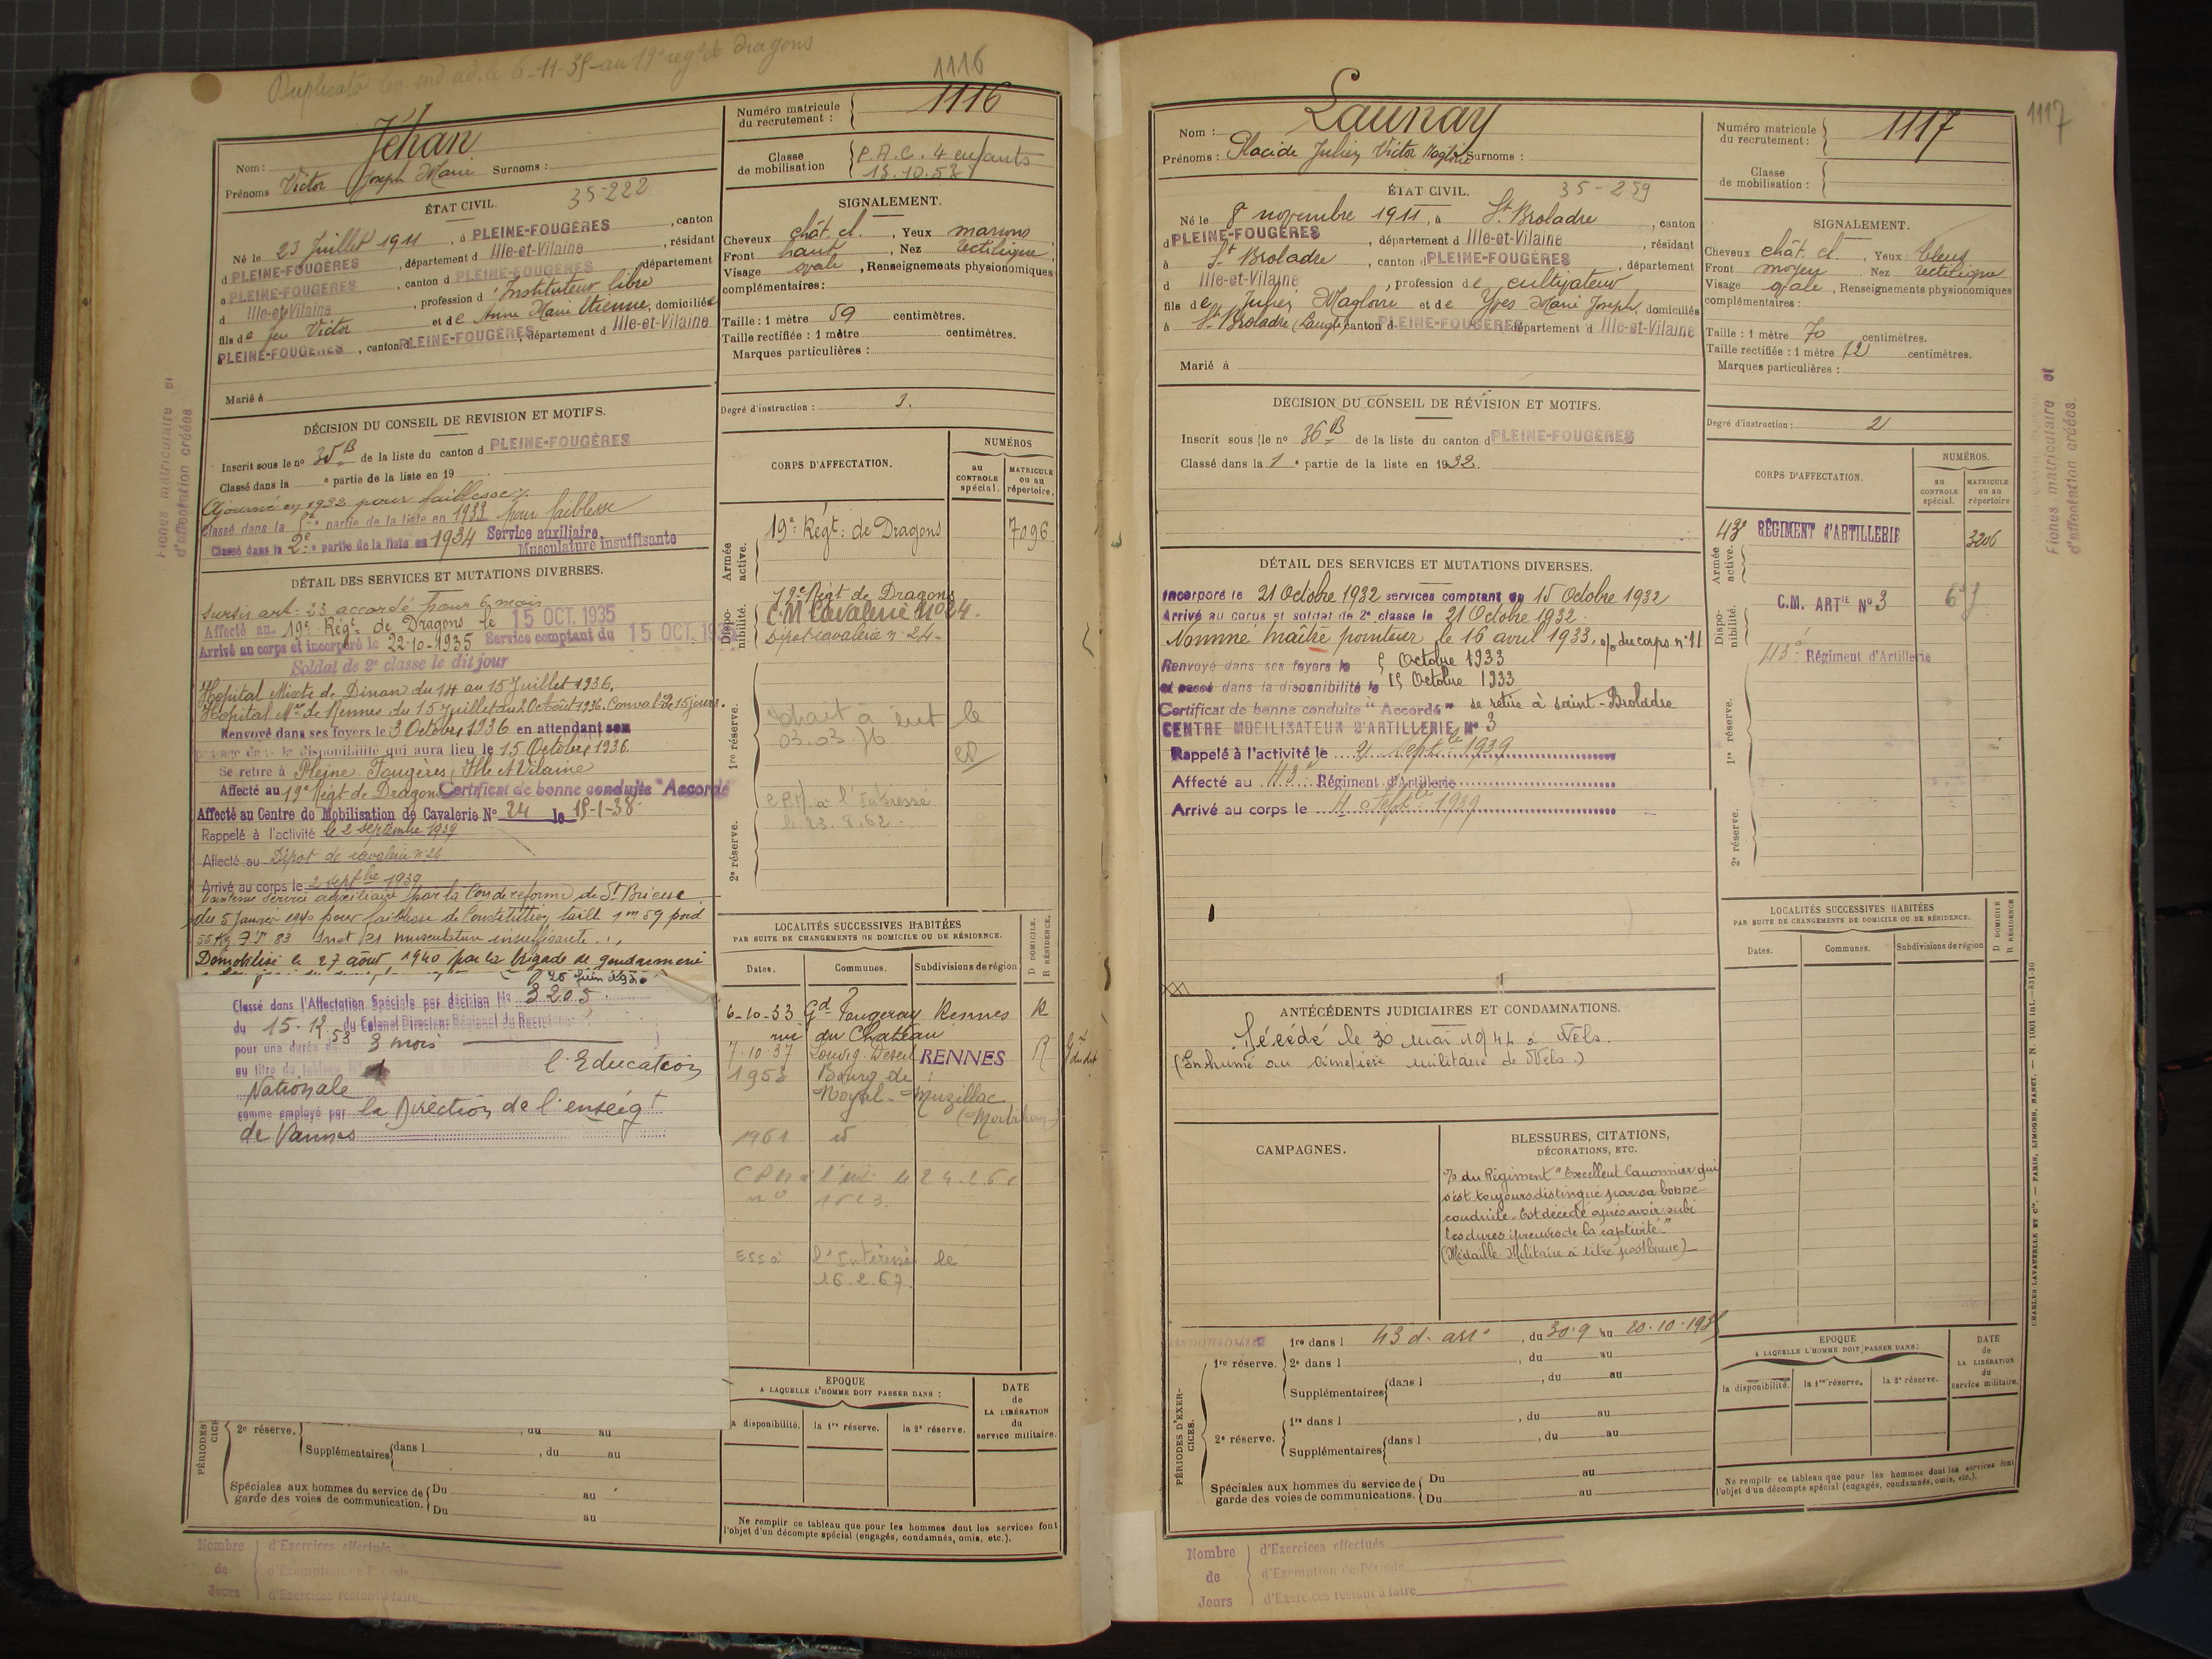 1116
Nom : Jéhan
Prénoms Victor Joseph Marie Surnoms :
35-222
ÉTAT CIVIL.
Né le 23 Juillet 1911, à PLEINE-FOUGÈRES, canton
d PLEINE-FOUGÈRES, département d Ille-et-Vilaine, résidant
a PLEINE-FOUGÈRES, canton d PLEINE-FOUGÈRES département
d Ille-et-Vilaine, profession d'Instituteur libre
fils de feu Victor et de Anne Marie Etienne, domiciliés
PLEINE-FOUGÈRES, canton d PLEINE-FOUGÈRES, département d Ille-et-Vilaine
Marié à
DÉCISION DU CONSEIL DE REVISION ET MOTIFS.
Inscrit sous le nº 35 B de la liste du canton d PLEINE-FOUGÈRES
Classé dans la e partie de la liste en 19
Ajourné en 1932 pour faiblesse
Classé dans la partie de la liste en 1933 pour faiblesse
Classé dans la 2e partie de la liste en 1934 Service auxiliaire.
Musculature insuffisante
DÉTAIL DES SERVICES ET MUTATIONS DIVERSES.
Sursis art: 23 accordé pour 6 mois
Affecté au 19e Régt de Dragons le 15 OCT. 1935
Arrivé au corps et incorporé le 22-10-1935 Service comptant du 15 OCT. 19
Soldat de 2e classe le dit jour
Hopital Mixte de Dinan du 14 au 15 Juillet 1936.
Hopital Mre de Rennes du 15 Juillet au 2 Octobre 1936. Conval ce 15 jours.
Renvoyé dans ses foyers le 3 Octobre 1936 en attendant son
passage dans la disponibilité qui aura lieu le 15 Octobre 1936.
Se retire à Pleine-Fougères, Ille et Vilaine
Affecté au 19e Régt de Dragons Certificat de bonne conduite "Accordé
Affecté au Centre de Mobilisation de Cavalerie Nº 24 le 15-1-38
Rappelé à l'activité le 2 septembre 1939
Affecté au Dépot de cavalerie nº 24
Arrivé au corps le 2 septbre 1939
Maintenu service auxiliaire par la Con de reforme de St Brieuc
du 5 Janvier 1940 pour faiblesse de Constitution taille 1m 59 poid
55 Kg musculature insuffisante
Démobilisé le 27 août 1940 par la brigade de gendarmerie
Classé dans l'Affectation Spéciale par décision Nº 3205
du 15-12-53 du Colonel Directeur Régional du Recrutement
pour une durée de 3 mois
l'Education
Nationale
comme employé par la Direction de l'enseigt
de Vannes
PÉRIODES
2e réserve. du au
Supplémentaires dans l , du au
Spéciales aux hommes du service de garde des voies de communication. Du au
Du au
Nombre de Jours
d'Exercices effectués
d'Exemption de Période
d'Exercices restant à faire
Numéro matricule du recrutement : 1116
Classe de mobilisation P.A.C. 4 enfants
SIGNALEMENT.
Cheveux chât. cl. , Yeux marrons
Front haut , Nez rectiligne
Visage ovale , Renseignements physionomiques
complémentaires :
Taille : 1 mètre 59 centimètres.
Taille rectifiée : 1 mètre centimètres.
Marques particulières :
Degré d'instruction : 3.
CORPS D'AFFECTATION.
NUMÉROS
au CONTROLE spécial.
MATRICULE ou au répertoire.
Armée active.
19e Régt: de Dragons 7096
Disponibilité.
19e Régt de Dragons
C.M Cavalerie Nº 24.
Dépot cavalerie nº 24
1re réserve.
03.03.76
2e réserve.
à l'Intéressé
le 23.8.62.
LOCALITÉS SUCCESSIVES HABITÉES
PAR SUITE DE CHANGEMENTS DE DOMICILE OU DE RÉSIDENCE.
D DOMICILE.
R RÉSIDENCE.
Dates. Communes. Subdivisions de région
6-10-33 Gd Fougeray Rennes R
rue du Château
7-10-37 Louvig. Desert RENNES R
1953 Bourg de
Noyal-Muzillac
(Morbihan)
1961 id
l'Intéressé le
16.2.67.
EPOQUE
A LAQUELLE L'HOMME DOIT PASSER DANS :
a disponibilité. la 1re réserve. la 2e réserve.
DATE de LA LIBÉRATION du service militaire.
Ne remplir ce tableau que pour les hommes dont les services font
l'objet d'un décompte spécial (engagés, condamnés, omis, etc.).
Fiches matriculaire et
d'affectation créées
1117
Nom : Launay
Prénoms : Placide Julien Victor Magloire Surnoms :
35-259
ÉTAT CIVIL.
Né le 8 novembre 1911, à St Broladre , canton
d PLEINE-FOUGÈRES , département d Ille-et-Vilaine , résidant
à St Broladre , canton d PLEINE-FOUGÈRES , département
d Ille-et-Vilaine , profession de cultivateur
fils de Julien Magloire et de Yves Marie Joseph, domiciliés
à St Broladre canton d PLEINE-FOUGÈRES département d Ille-et-Vilaine
Marié à
DÉCISION DU CONSEIL DE RÉVISION ET MOTIFS.
Inscrit sous le nº 36 B de la liste du canton d PLEINE-FOUGÈRES
Classé dans la 1e partie de la liste en 1932.
DÉTAIL DES SERVICES ET MUTATIONS DIVERSES.
Incorporé le 21 Octobre 1932 services comptant du 15 Octobre 1932
Arrivé au corps et soldat de 2e classe le 21 Octobre 1932.
Nommé maître pointeur le 16 avril 1933. o/o du corps nº 11
Renvoyé dans ses foyers le 5 Octobre 1933
et passé dans la disponibilité le 15 Octobre 1933
Certificat de bonne conduite "Accordé" se retire à Saint-Broladre
CENTRE MOBILISATEUR D'ARTILLERIE Nº 3
Rappelé à l'activité le 2 septbre 1939
Affecté au 43e Régiment d'Artillerie
Arrivé au corps le 4 Septbre 1939
ANTÉCÉDENTS JUDICIAIRES ET CONDAMNATIONS.
Décédé le 30 mai 1944 à Wels.
(Enhumé au cimetière militaire de Wels.)
CAMPAGNES.
BLESSURES, CITATIONS, DÉCORATIONS, ETC.
% du Régiment "Excellent canonnier qui
s'est toujours distingué par sa bonne
conduite. Est décédé après avoir subi
les dures épreuves de la captivité"
(Médaille Militaire à titre posthume)
PÉRIODES D'EXERCICES.
1re réserve. 1re dans l 43 d. artie , du 30.9 au 20-10-193
2e dans l , du au
Supplémentaires dans l , du au
2e réserve. 1re dans l , du au
Supplémentaires dans l , du au
Spéciales aux hommes du service de garde des voies de communications. Du au
Du au
Nombre de Jours
d'Exercices effectués
d'Exemption de Période
d'Exercices restant à faire
Numéro matricule du recrutement : 1117
Classe de mobilisation :
SIGNALEMENT.
Cheveux chât. cl. Yeux bleus
Front moyen Nez rectiligne
Visage ovale , Renseignements physionomiques
complémentaires :
Taille : 1 mètre 70 centimètres.
Taille rectifiée : 1 mètre 72 centimètres.
Marques particulières :
Degré d'instruction : 2
CORPS D'AFFECTATION.
NUMÉROS.
au CONTROLE spécial.
MATRICULE ou au répertoire
Armée active.
43e RÉGIMENT D'ARTILLERIE 3206
Disponibilité.
C.M. ARTIE Nº 3
43e Régiment d'Artillerie
1re réserve.
2e réserve.
LOCALITÉS SUCCESSIVES HABITÉES
PAR SUITE DE CHANGEMENTS DE DOMICILE OU DE RÉSIDENCE.
D DOMICILE
R RÉSIDENCE
Dates. Communes. Subdivisions de région
EPOQUE
A LAQUELLE L'HOMME DOIT PASSER DANS :
la disponibilité. la 1re réserve. la 2e réserve.
DATE de LA LIBÉRATION du service militaire.
Ne remplir ce tableau que pour les hommes dont les services font
l'objet d'un décompte spécial (engagés, condamnés, omis, etc.).
Fiches matriculaire et
d'affectation créées.
CHARLES-LAVAUZELLE ET Cie. — PARIS, LIMOGES, NANCY. — N. 1001 Int.—831-30
1117